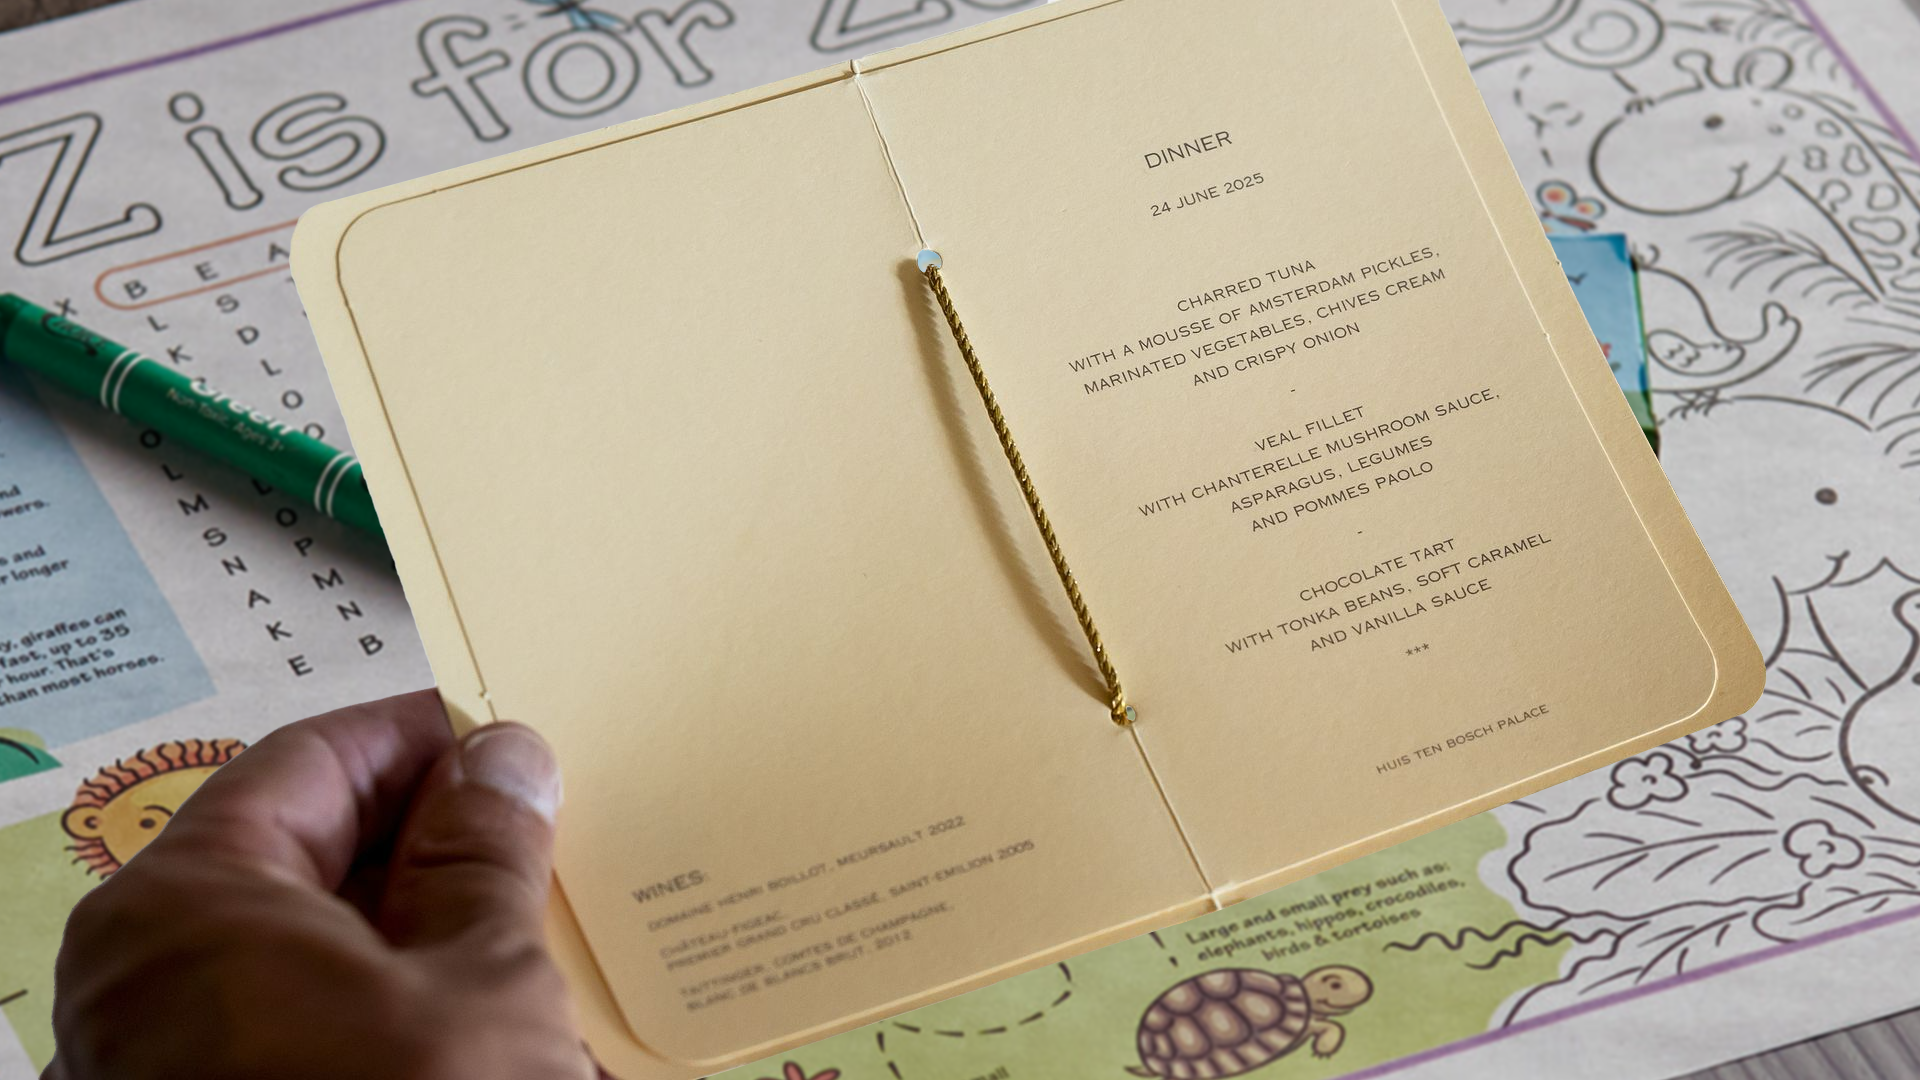 Z is for
B E A
X L S
K D
L
O
O
L
M O
S P
N M
A N
K B
E
Green
Non-Toxic, Ages 3+
nd
wers.
s and
r longer
y, giraffes can
fast, up to 35
hour. That's
than most horses.
WINES:
DOMAINE HENRI BOILLOT, MEURSAULT 2022
CHÂTEAU-FIGEAC,
PREMIER GRAND CRU CLASSÉ, SAINT-EMILION 2005
TAITTINGER, COMTES DE CHAMPAGNE,
BLANC DE BLANCS BRUT, 2012
DINNER
24 JUNE 2025
CHARRED TUNA
WITH A MOUSSE OF AMSTERDAM PICKLES,
MARINATED VEGETABLES, CHIVES CREAM
AND CRISPY ONION
-
VEAL FILLET
WITH CHANTERELLE MUSHROOM SAUCE,
ASPARAGUS, LEGUMES
AND POMMES PAOLO
-
CHOCOLATE TART
WITH TONKA BEANS, SOFT CARAMEL
AND VANILLA SAUCE
***
HUIS TEN BOSCH PALACE
Large and small prey such as:
elephants, hippos, crocodiles,
birds & tortoises